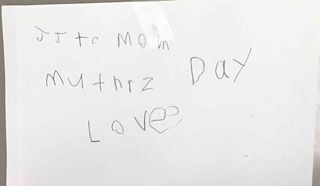 JJ to MOM
MUthrz DaY
LOVe